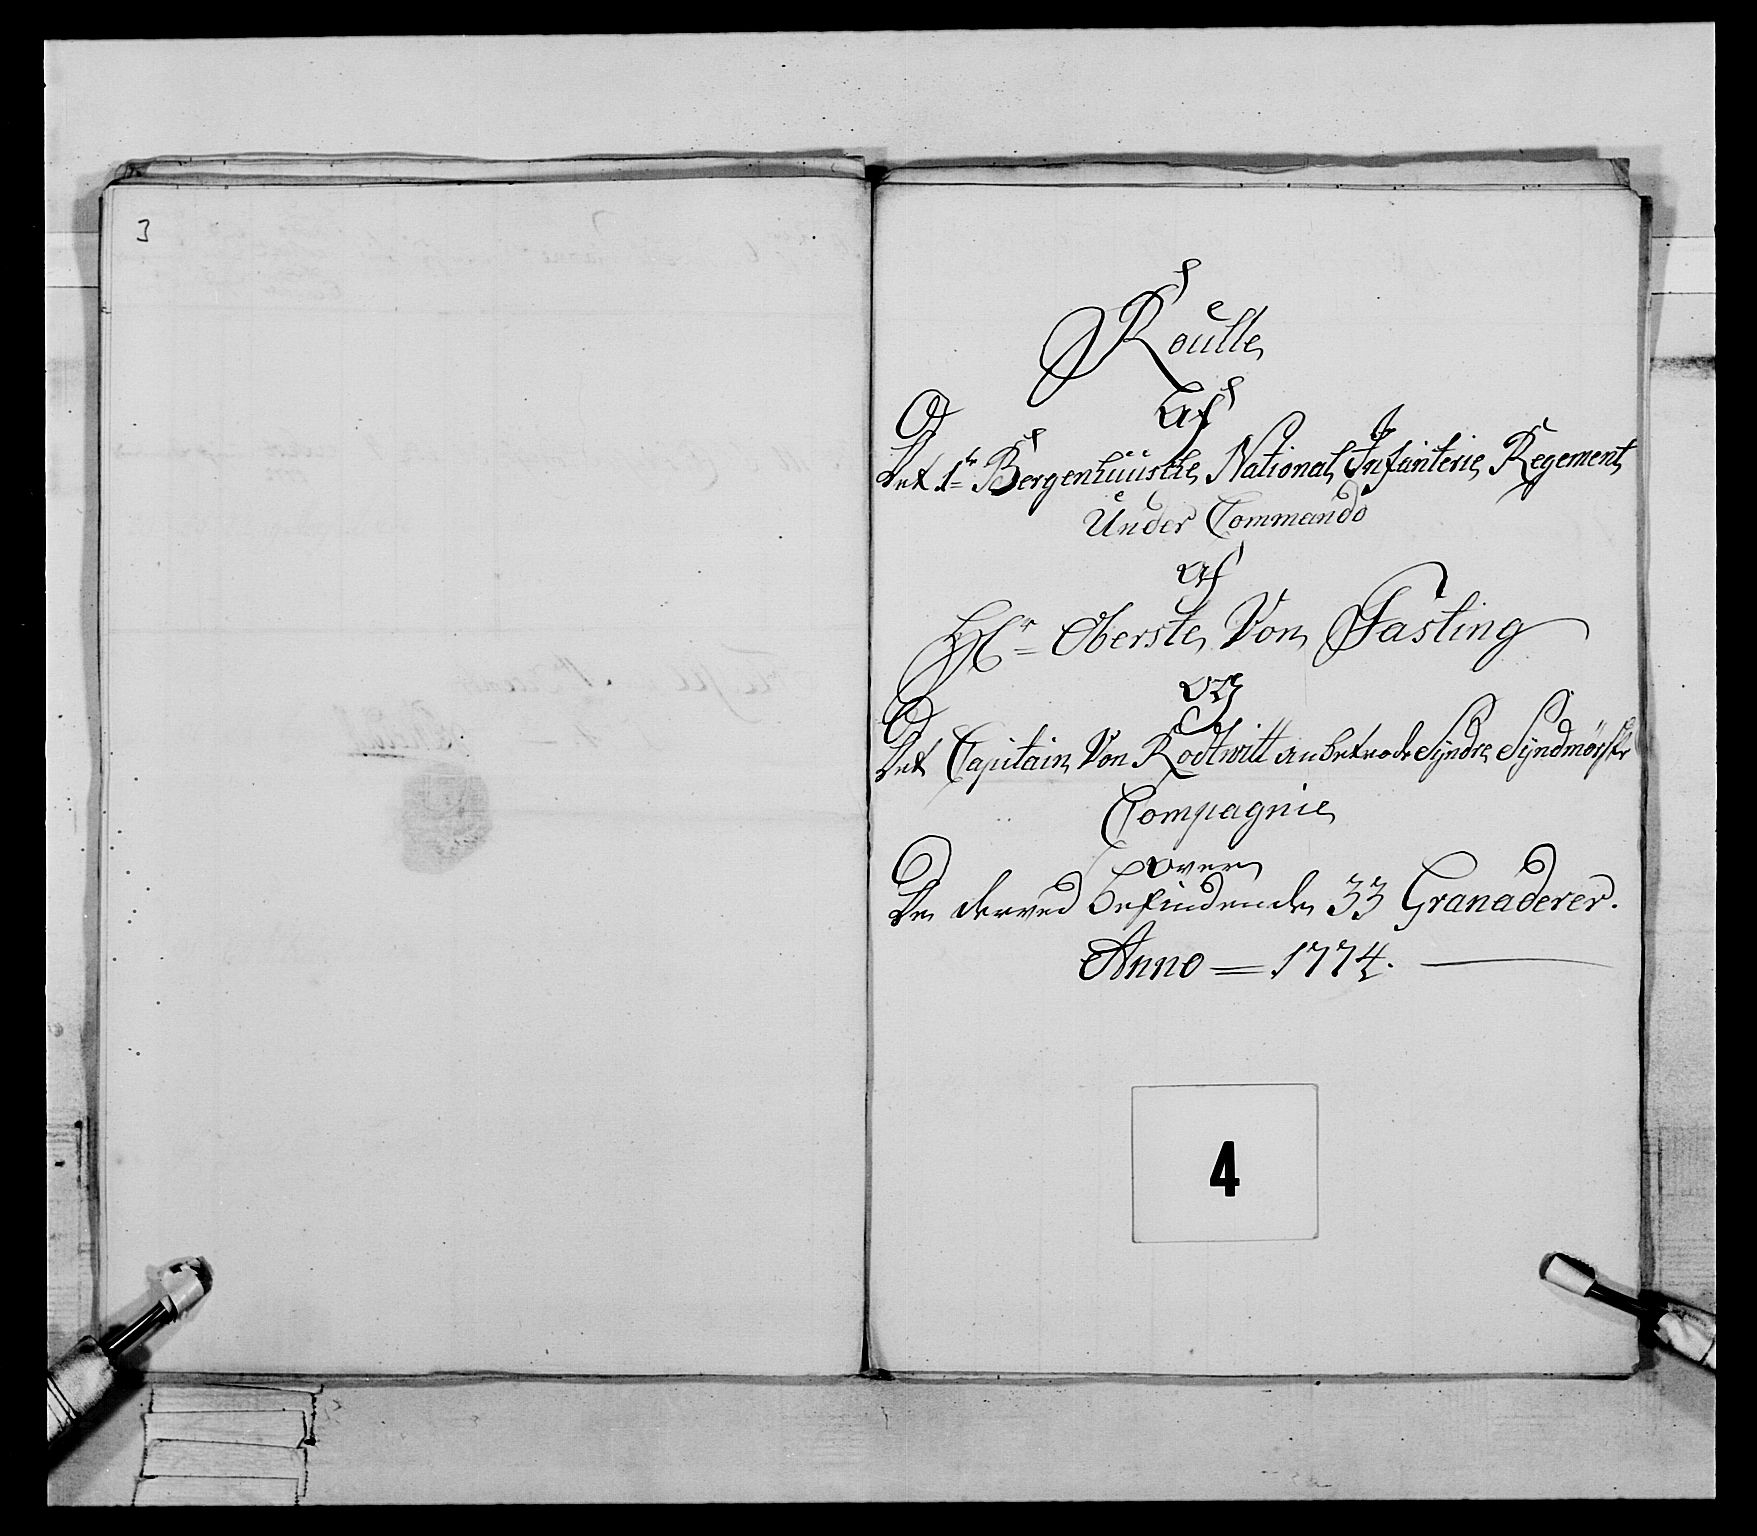 3
Roulle
Af
Det 1te Bergenhuuske National Infanterie Regement
Under Commando
af
Hr Oberste Von Fasting
og
Det Capitain Von Rodtwitt anbetroede Syndre Syndmørske
Compagnie
over
De derved befindende 33 Granaderer.
Anno = 1774.
4